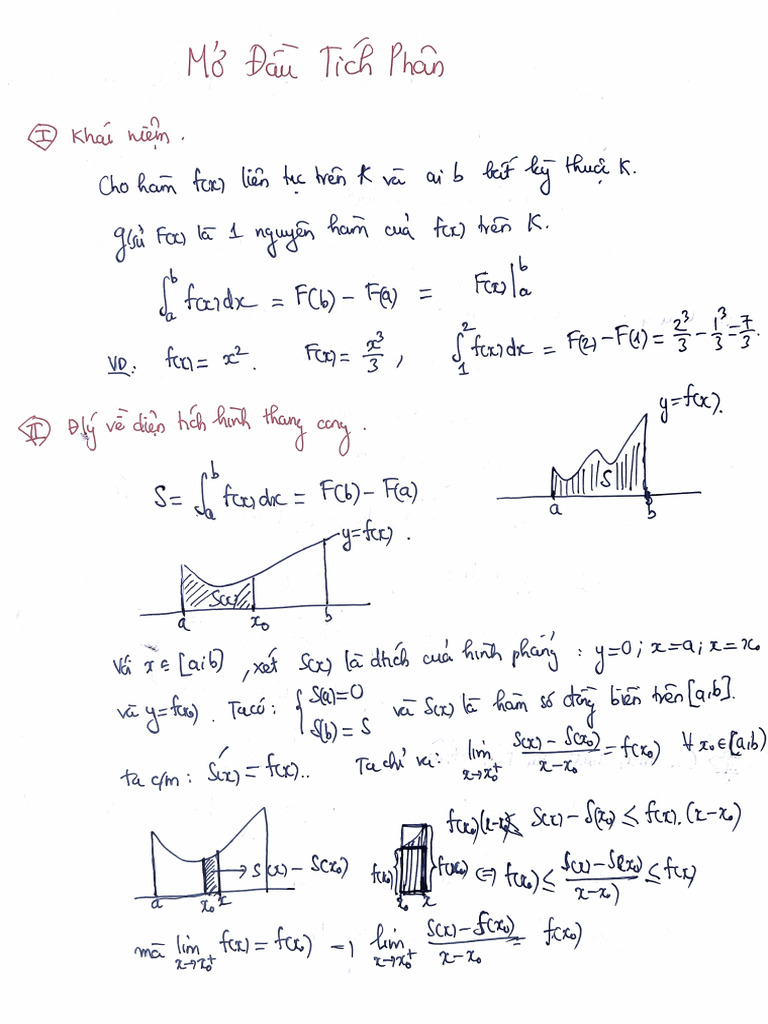 Mở Đầu Tích Phân
I Khái niệm.
Cho hàm f(x) liên tục trên K và a; b bất kỳ thuộc K.
g/sử F(x) là 1 nguyên hàm của f(x) trên K.
∫_a^b f(x)dx = F(b) - F(a) = F(x)|_a^b
VD: f(x) = x². F(x) = x³/3, ∫_1^2 f(x)dx = F(2) - F(1) = 2³/3 - 1³/3 = 7/3.
II Đ.lý về diện tích hình thang cong.
y=f(x).
S
a b
S = ∫_a^b f(x)dx = F(b) - F(a)
y=f(x).
S(x)
a x₀ b
Với x ∈ [a;b), xét S(x) là dtích của hình phẳng: y=0; x=a; x=x₀
và y=f(x). Ta có: { S(a)=0 S(b)=S và S(x) là hàm số đồng biến trên [a,b].
ta c/m: S'(x) = f(x).. Ta chỉ ra: lim_{x→x₀⁺} (S(x) - S(x₀))/(x-x₀) = f(x₀) ∀ x₀∈[a;b)
f(x₀)(x-x₀) ≤ S(x) - S(x₀) ≤ f(x).(x-x₀)
→ S(x) - S(x₀)
a x₀ x
f(x₀) f(x₀) x₀ x
⇔ f(x₀) ≤ (S(x) - S(x₀))/(x-x₀) ≤ f(x)
mà lim_{x→x₀⁺} f(x) = f(x₀) → lim_{x→x₀⁺} (S(x) - f(x₀))/(x-x₀) = f(x₀)